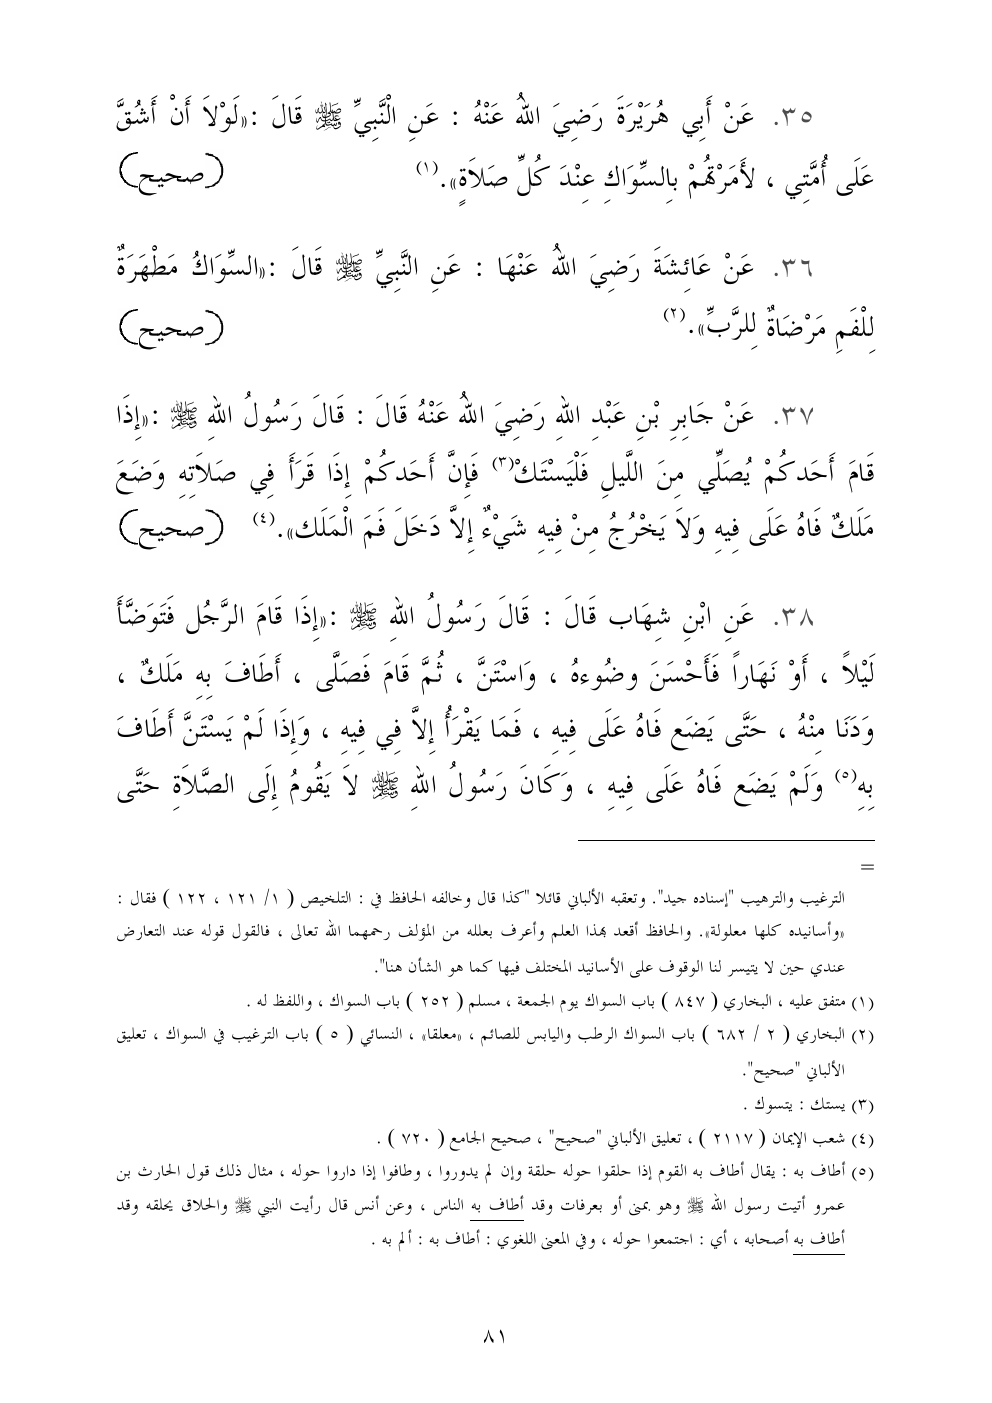 ٣٥. عَنْ أَبِي هُرَيْرَةَ رَضِيَ اللهُ عَنْهُ : عَنِ الْنَّبِيِّ ﷺ قَالَ :«لَوْلاَ أَنْ أَشُقَّ
عَلَى أُمَّتِي ، لأَمَرْتُهُمْ بِالسِّوَاكِ عِنْدَ كُلِّ صَلاَةٍ».(١) (صحيح)
٣٦. عَنْ عَائِشَةَ رَضِيَ اللهُ عَنْهَا : عَنِ النَّبِيِّ ﷺ قَالَ :«السِّوَاكُ مَطْهَرَةٌ
لِلْفَمِ مَرْضَاةٌ لِلرَّبِّ».(٢) (صحيح)
٣٧. عَنْ جَابِرِ بْنِ عَبْدِ اللهِ رَضِيَ اللهُ عَنْهُ قَالَ : قَالَ رَسُولُ اللهِ ﷺ :«إِذَا
قَامَ أَحَدكُمْ يُصَلِّي مِنَ اللَّيلِ فَلْيَسْتَكْ(٣) فَإِنَّ أَحَدكُمْ إِذَا قَرَأَ فِي صَلَاتِهِ وَضَعَ
مَلَكٌ فَاهُ عَلَى فِيهِ وَلاَ يَخْرُجُ مِنْ فِيهِ شَيْءٌ إِلاَّ دَخَلَ فَمَ الْمَلَك».(٤) (صحيح)
٣٨. عَنِ ابْنِ شِهَاب قَالَ : قَالَ رَسُولُ اللهِ ﷺ :«إِذَا قَامَ الرَّجُل فَتَوَضَّأَ
لَيْلاً ، أَوْ نَهَاراً فَأَحْسَنَ وضُوءهُ ، وَاسْتَنَّ ، ثُمَّ قَامَ فَصَلَّى ، أَطَافَ بِهِ مَلَكٌ ،
وَدَنَا مِنْهُ ، حَتَّى يَضَع فَاهُ عَلَى فِيهِ ، فَمَا يَقْرَأُ إِلاَّ فِي فِيهِ ، وَإِذَا لَمْ يَسْتَنَّ أَطَافَ
بِهِ(٥) وَلَمْ يَضَع فَاهُ عَلَى فِيهِ ، وَكَانَ رَسُولُ اللهِ ﷺ لاَ يَقُومُ إِلَى الصَّلاَةِ حَتَّى
=
الترغيب والترهيب "إسناده جيد". وتعقبه الألباني قائلا "كذا قال وخالفه الحافظ في : التلخيص ( ١/ ١٢١ ، ١٢٢ ) فقال :
«وأسانيده كلها معلولة». والحافظ أقعد بهذا العلم وأعرف بعلله من المؤلف رحمهما الله تعالى ، فالقول قوله عند التعارض
عندي حين لا يتيسر لنا الوقوف على الأسانيد المختلف فيها كما هو الشأن هنا".
(١) متفق عليه ، البخاري ( ٨٤٧ ) باب السواك يوم الجمعة ، مسلم ( ٢٥٢ ) باب السواك ، واللفظ له .
(٢) البخاري ( ٢ / ٦٨٢ ) باب السواك الرطب واليابس للصائم ، «معلقا» ، النسائي ( ٥ ) باب الترغيب في السواك ، تعليق
الألباني "صحيح".
(٣) يستك : يتسوك .
(٤) شعب الإيمان ( ٢١١٧ ) ، تعليق الألباني "صحيح" ، صحيح الجامع ( ٧٢٠ ) .
(٥) أطاف به : يقال أطاف به القوم إذا حلقوا حوله حلقة وإن لم يدوروا ، وطافوا إذا داروا حوله ، مثال ذلك قول الحارث بن
عمرو أتيت رسول الله ﷺ وهو بمنى أو بعرفات وقد أطاف به الناس ، وعن أنس قال رأيت النبي ﷺ والحلاق يحلقه وقد
أطاف به أصحابه ، أي : اجتمعوا حوله ، وفي المعنى اللغوي : أطاف به : ألم به .
٨١